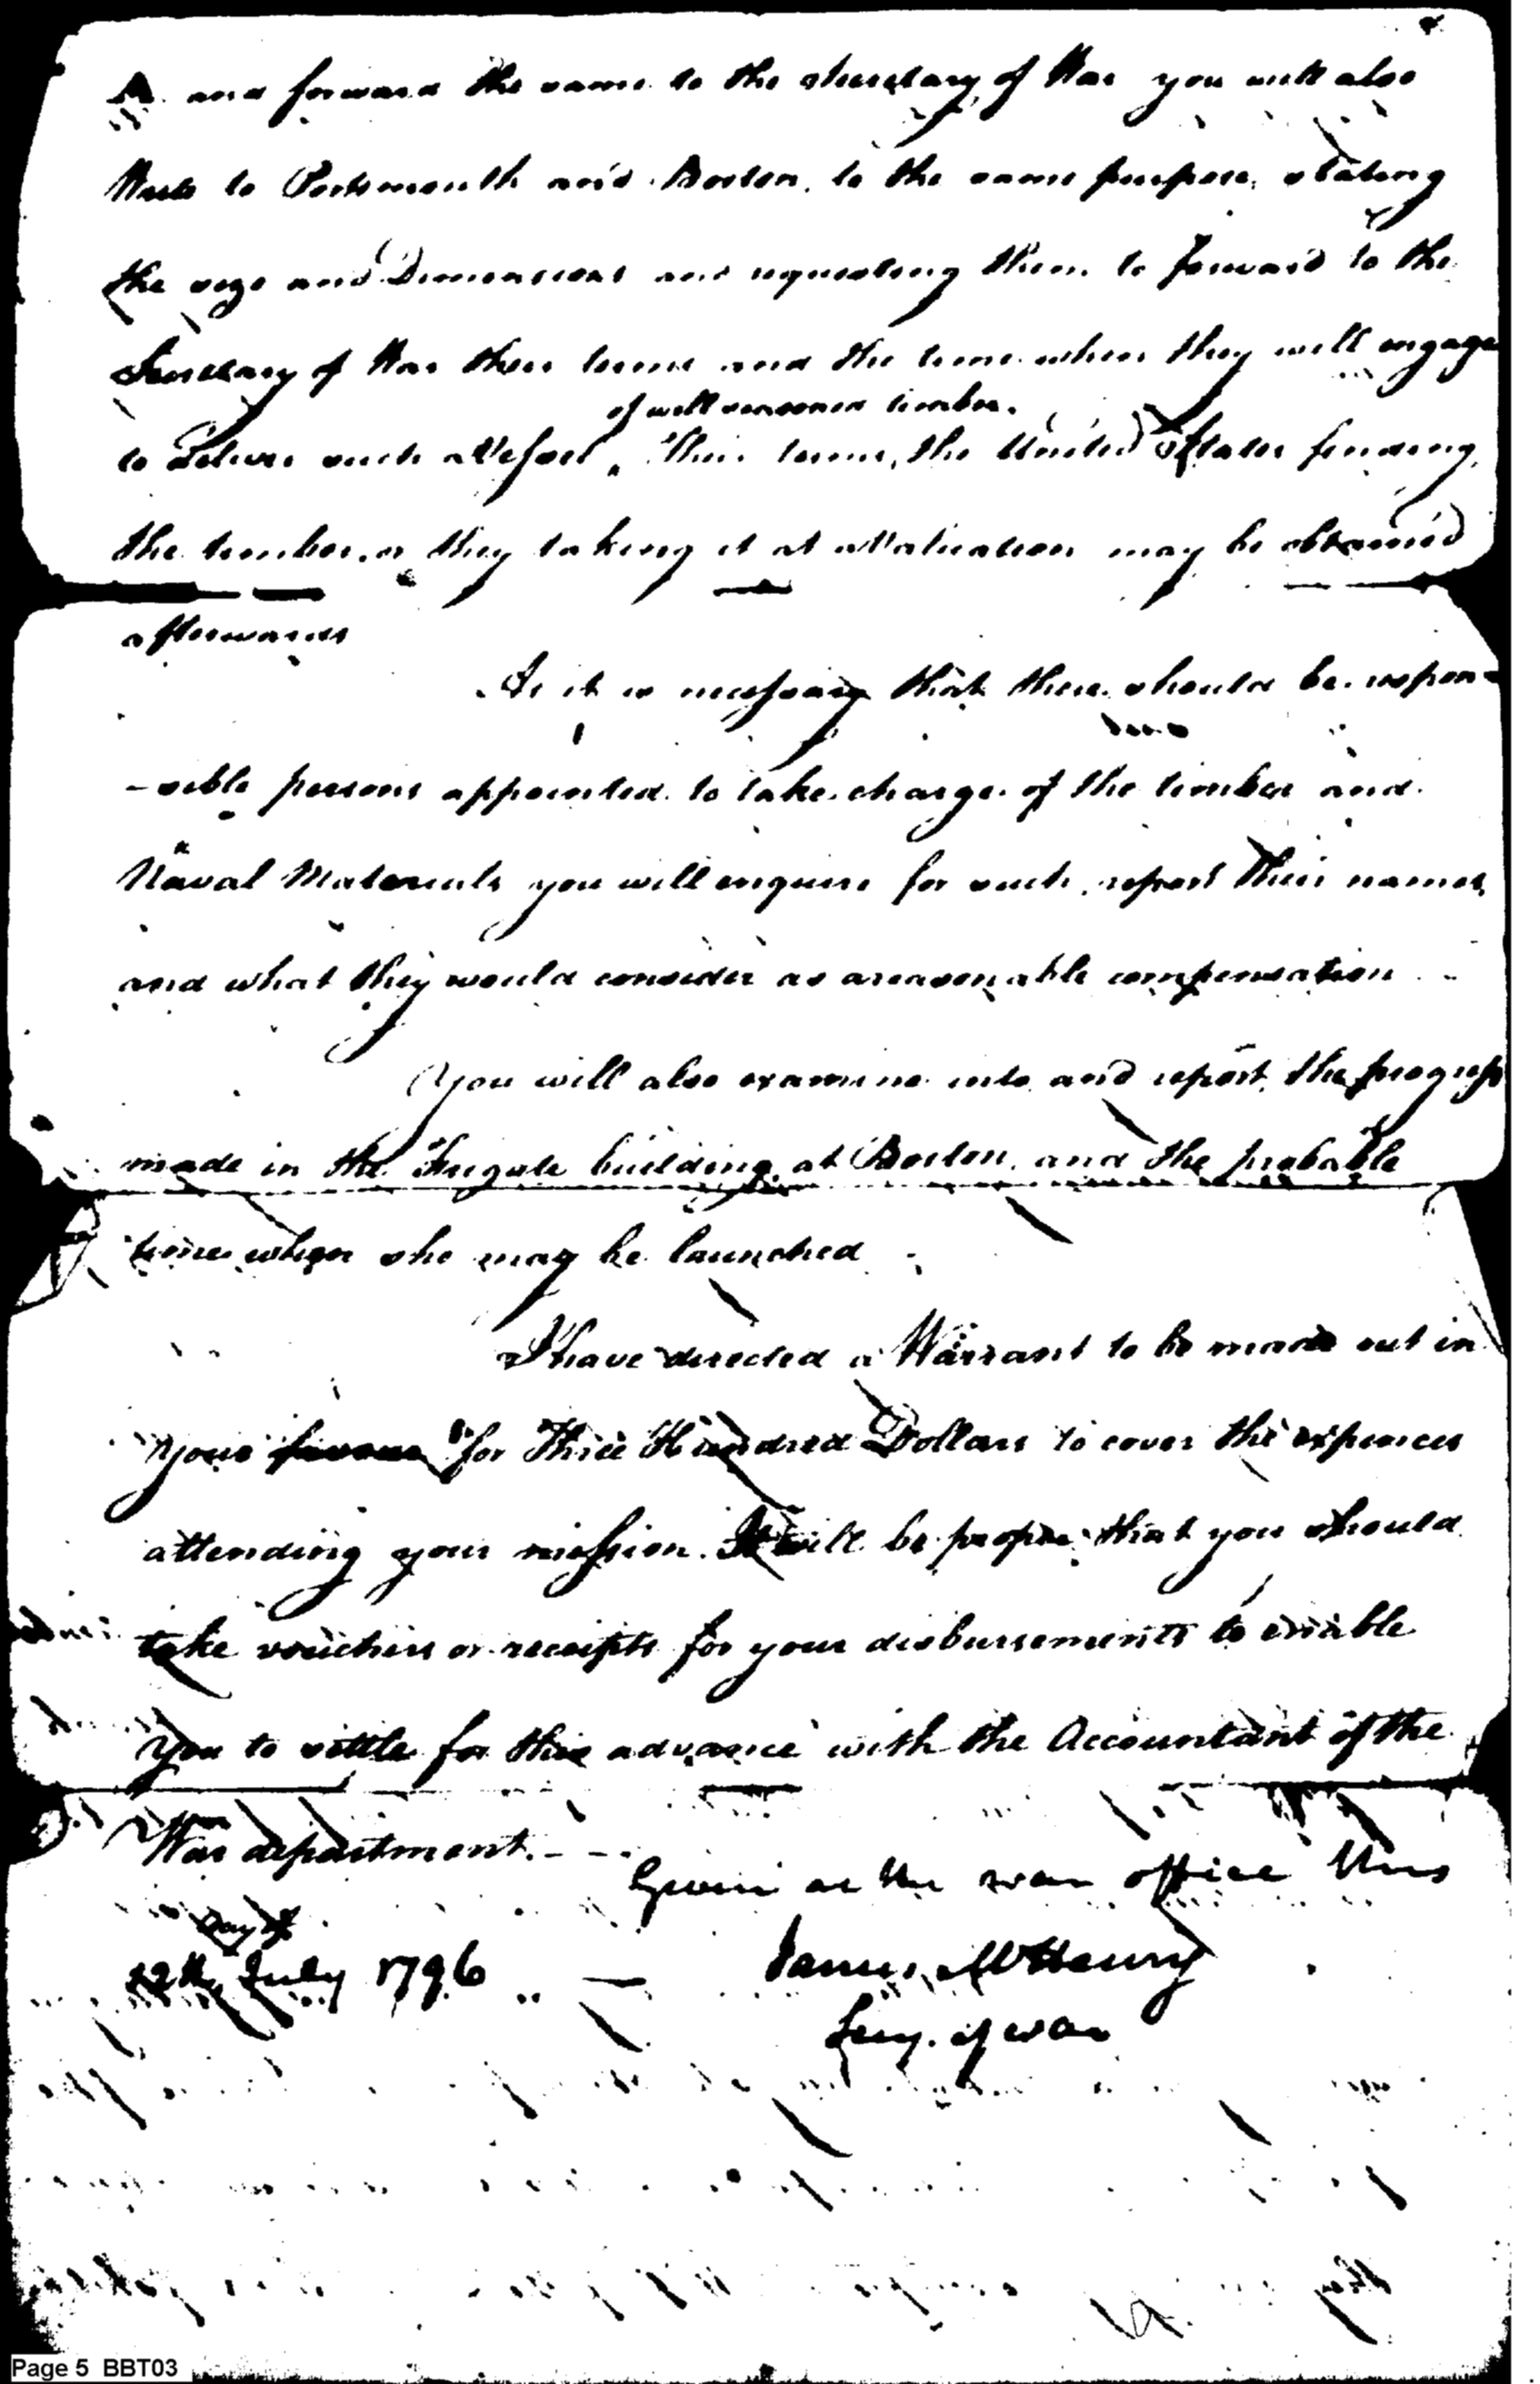 and forward the same to the Secretary of War you will also
Write to Portsmouth and Boston, to the same purpose, stating
the size and Dimensions and requesting them to forward to the
Secretary of War their terms and the time when they will engage
of well seasoned timber.
to Deliver such a Vessel, Their terms, the United States finding
the timber, or they taking it at a Valuation may be obtained
afterwards
As it is necessary that there should be respon-
-sible persons appointed to take charge of the timber and
Naval Materials you will enquire for such, report their names,
and what they would consider as a reasonable compensation
You will also examine into and report the progress
made in the Frigate building at Boston, and the probable
time when she may be launched
I have directed a Warrant to be made out in
your favour for Three Hundred Dollars to cover the expences
attending your mission. It will be proper that you should
take vouchers or receipts for your disbursements to enable
you to settle for this advance with the Accountant of the
War department. - -
Given at the war office this
day of
22th July 1796
James McHenry
Secy. of war
Page 5 BBT03